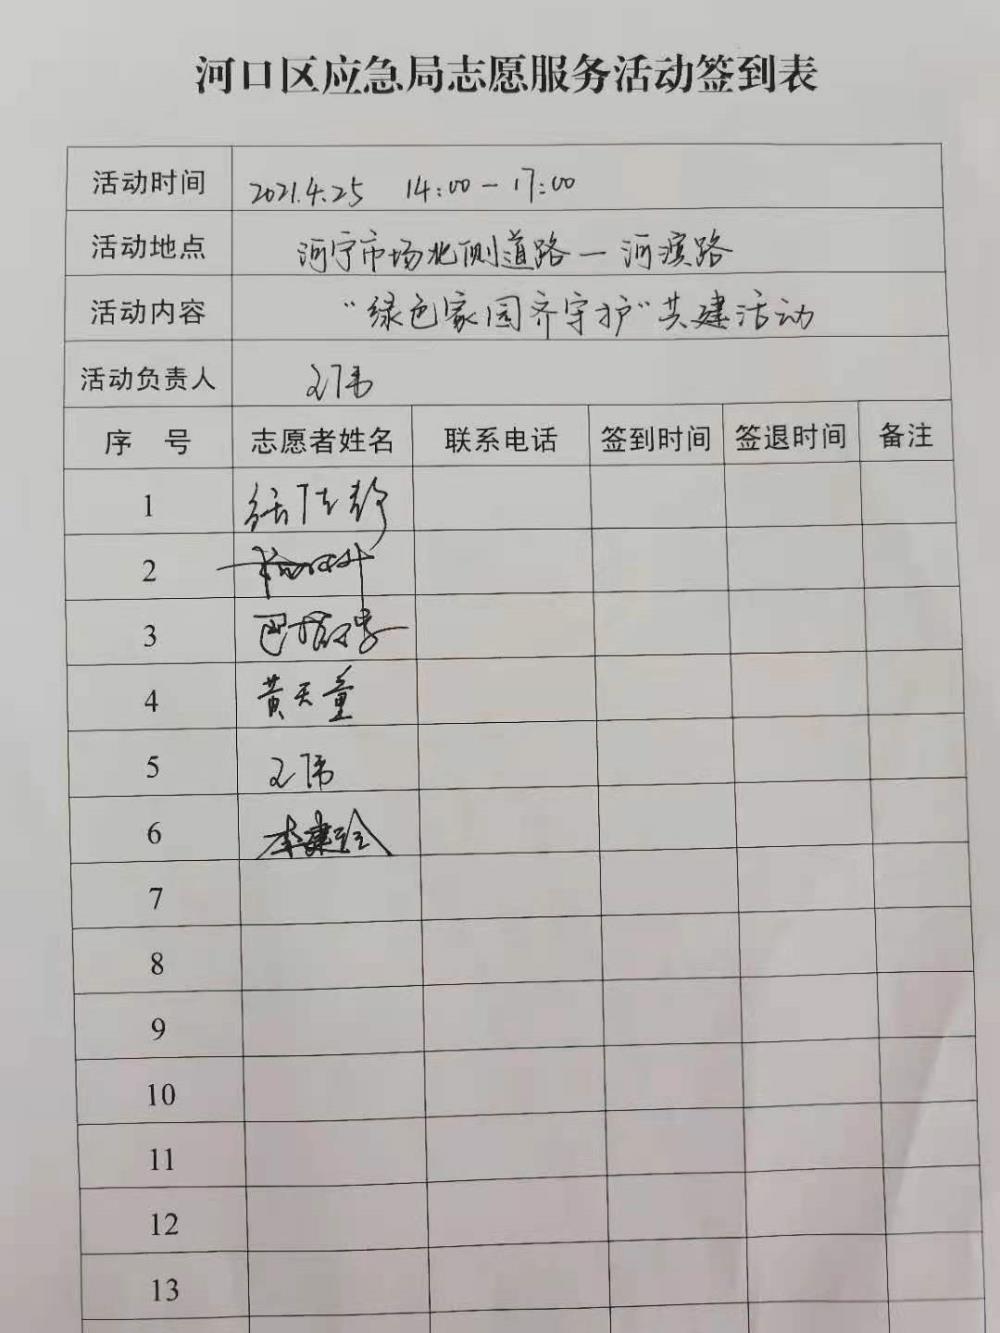 河口区应急局志愿服务活动签到表
活动时间 2021.4.25 14:00-17:00
活动地点 河宁市场北侧道路-河滨路
活动内容 "绿色家园齐守护"共建活动
活动负责人 王伟
序号 志愿者姓名 联系电话 签到时间 签退时间 备注
1
2
3 巴
4 黄天童
5 王伟
6 李建玲
7
8
9
10
11
12
13